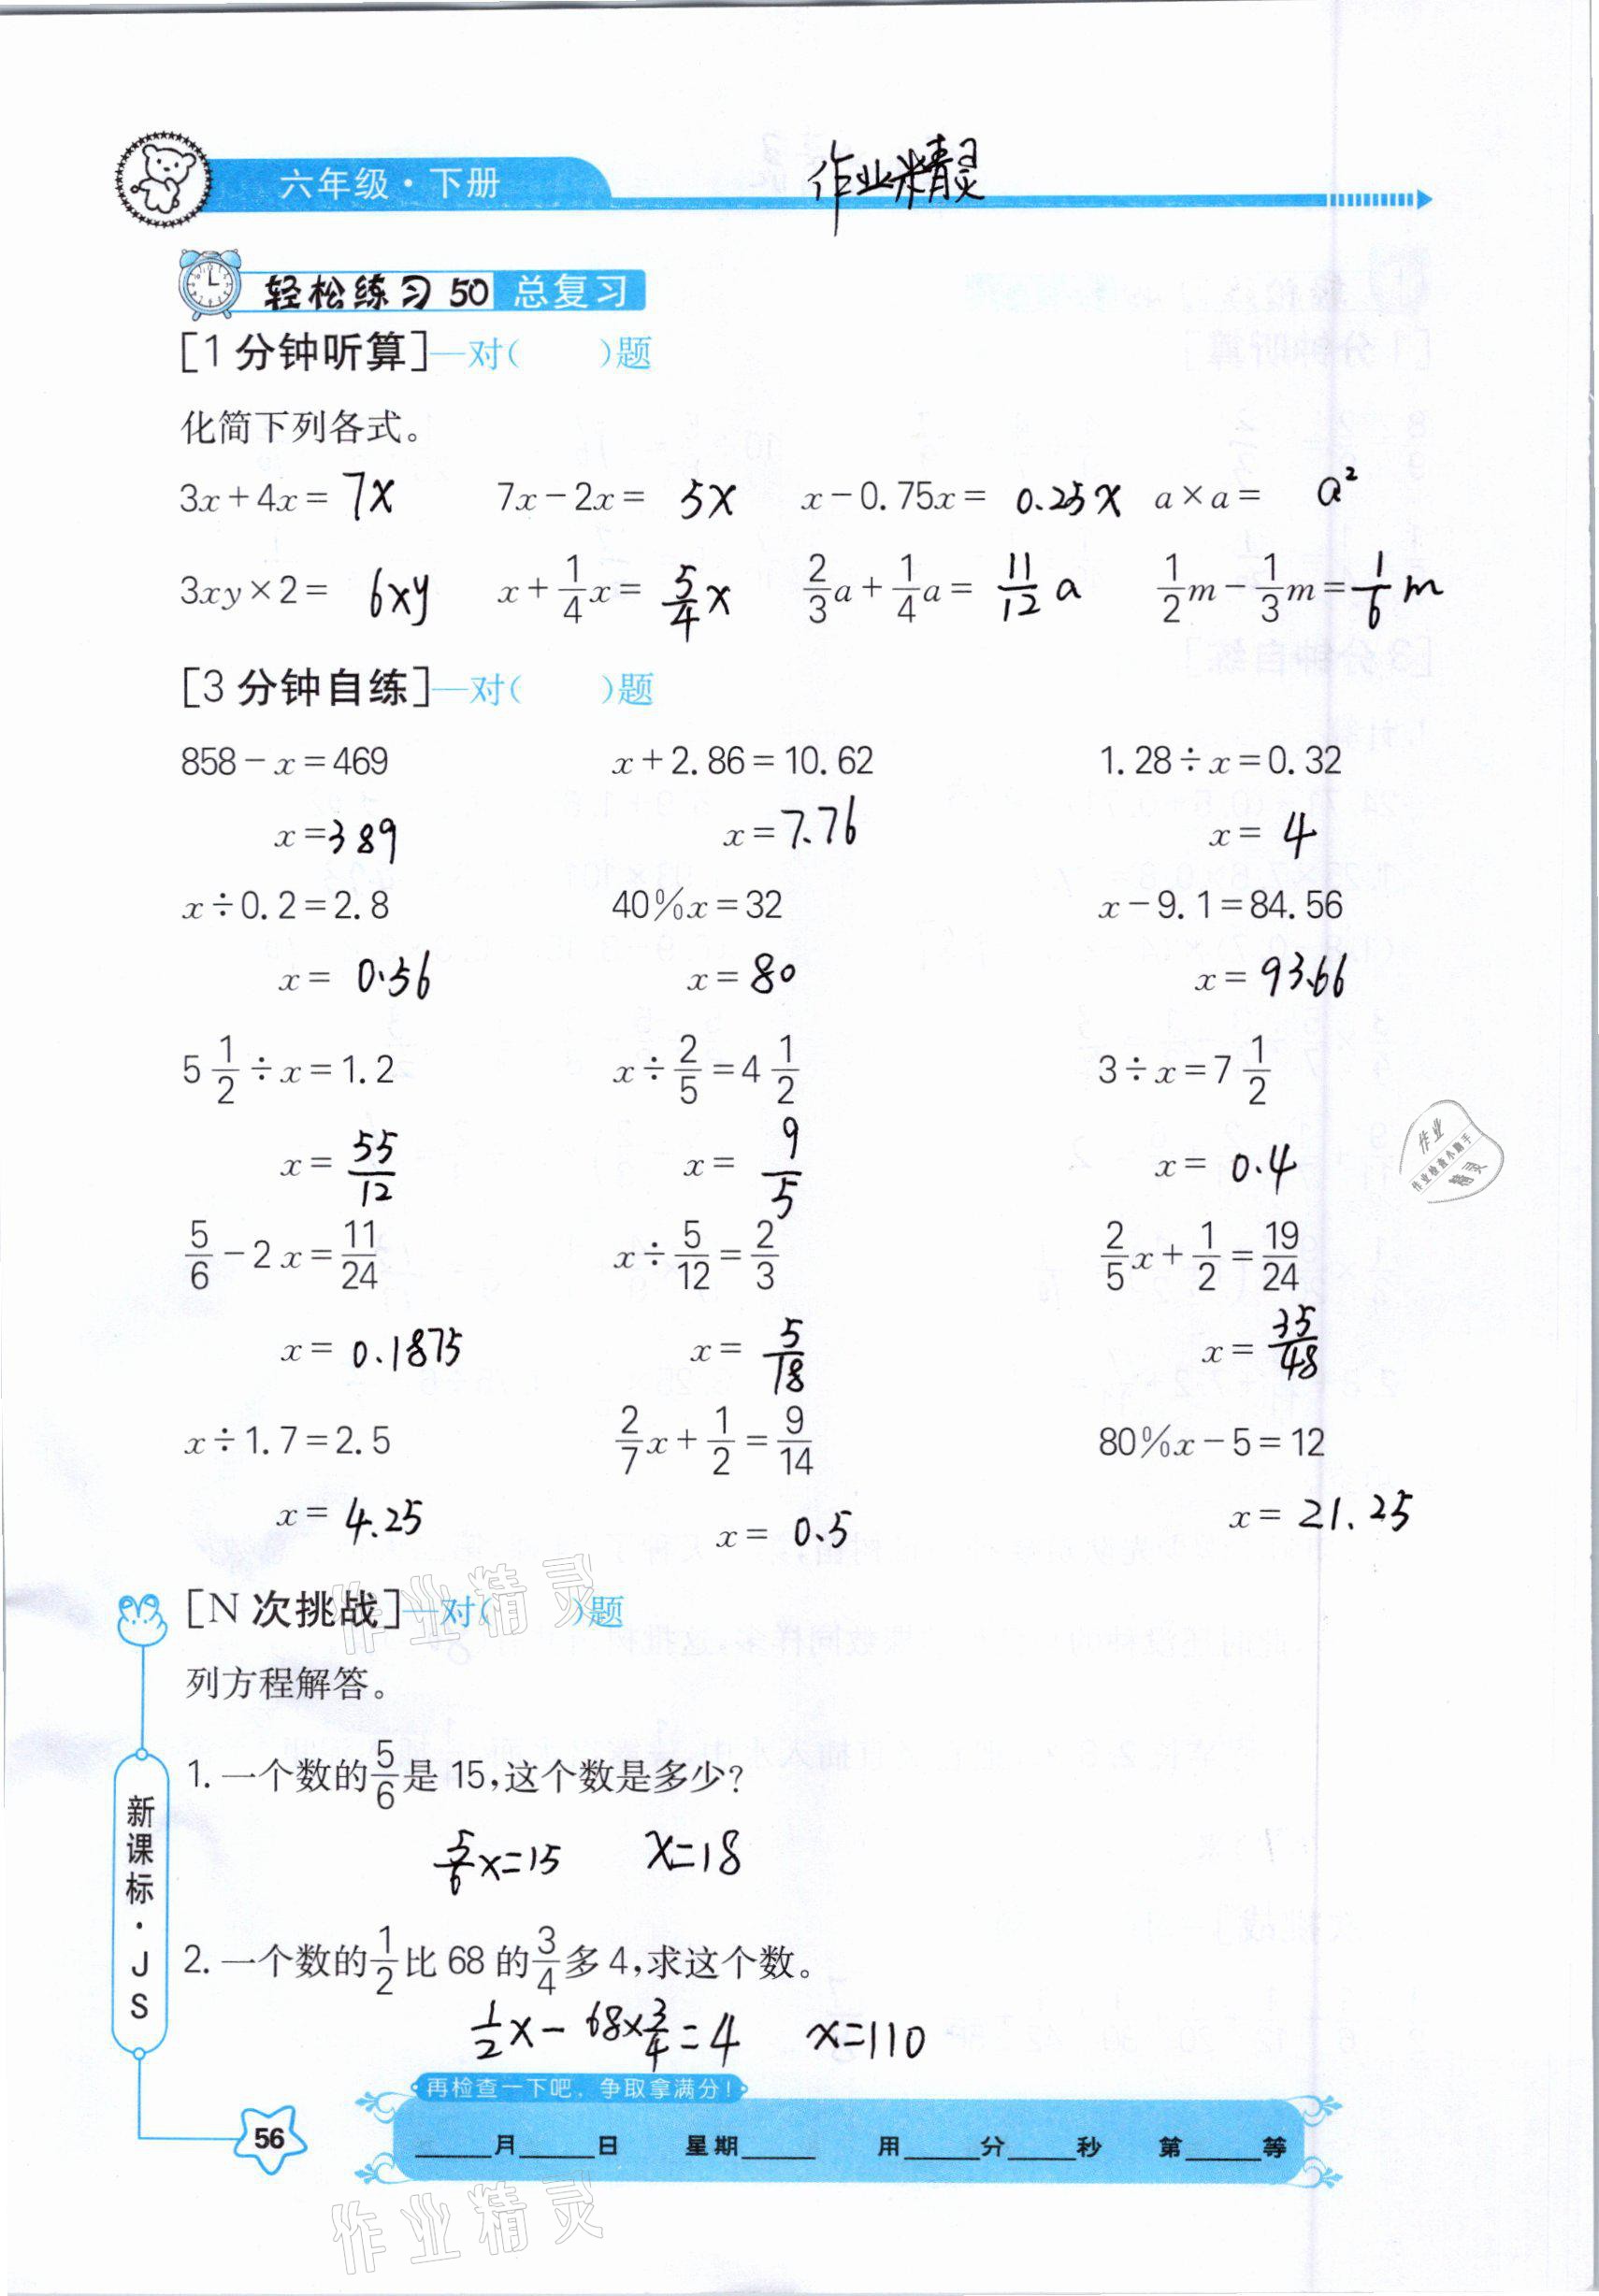 六年级·下册
作业精灵
轻松练习 50 总复习
[1 分钟听算]—对(　　)题
化简下列各式。
3x+4x= 7x　7x-2x= 5x　x-0.75x= 0.25x　a×a= a²
3xy×2= 6xy　x+1/4x= 5/4x　2/3a+1/4a= 11/12a　1/2m-1/3m= 1/6m
[3 分钟自练]—对(　　)题
858-x=469　x+2.86=10.62　1.28÷x=0.32
x=389　x=7.76　x=4
x÷0.2=2.8　40%x=32　x-9.1=84.56
x=0.56　x=80　x=93.66
5 1/2÷x=1.2　x÷2/5=4 1/2　3÷x=7 1/2
x=55/12　x=9/5　x=0.4
5/6-2x=11/24　x÷5/12=2/3　2/5x+1/2=19/24
x=0.1875　x=5/18　x=35/48
x÷1.7=2.5　2/7x+1/2=9/14　80%x-5=12
x=4.25　x=0.5　x=21.25
[N 次挑战]—对(　　)题
列方程解答。
1. 一个数的5/6是 15,这个数是多少?
5/6x=15　x=18
2. 一个数的1/2比 68 的3/4多 4,求这个数。
1/2x-68×3/4=4　x=110
新课标·JS
再检查一下吧，争取拿满分！
____月____日　星期____　用____分____秒　第____等
56
作业
作业检查小助手
精灵
作业精灵
作业精灵